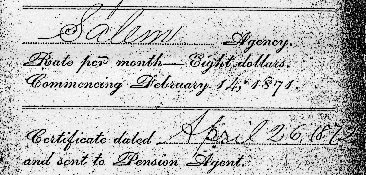 Salem Agency.
Rate per month—Eight dollars.
Commencing February 14, 1871.
Certificate dated April 26 1872
and sent to Pension Agent.